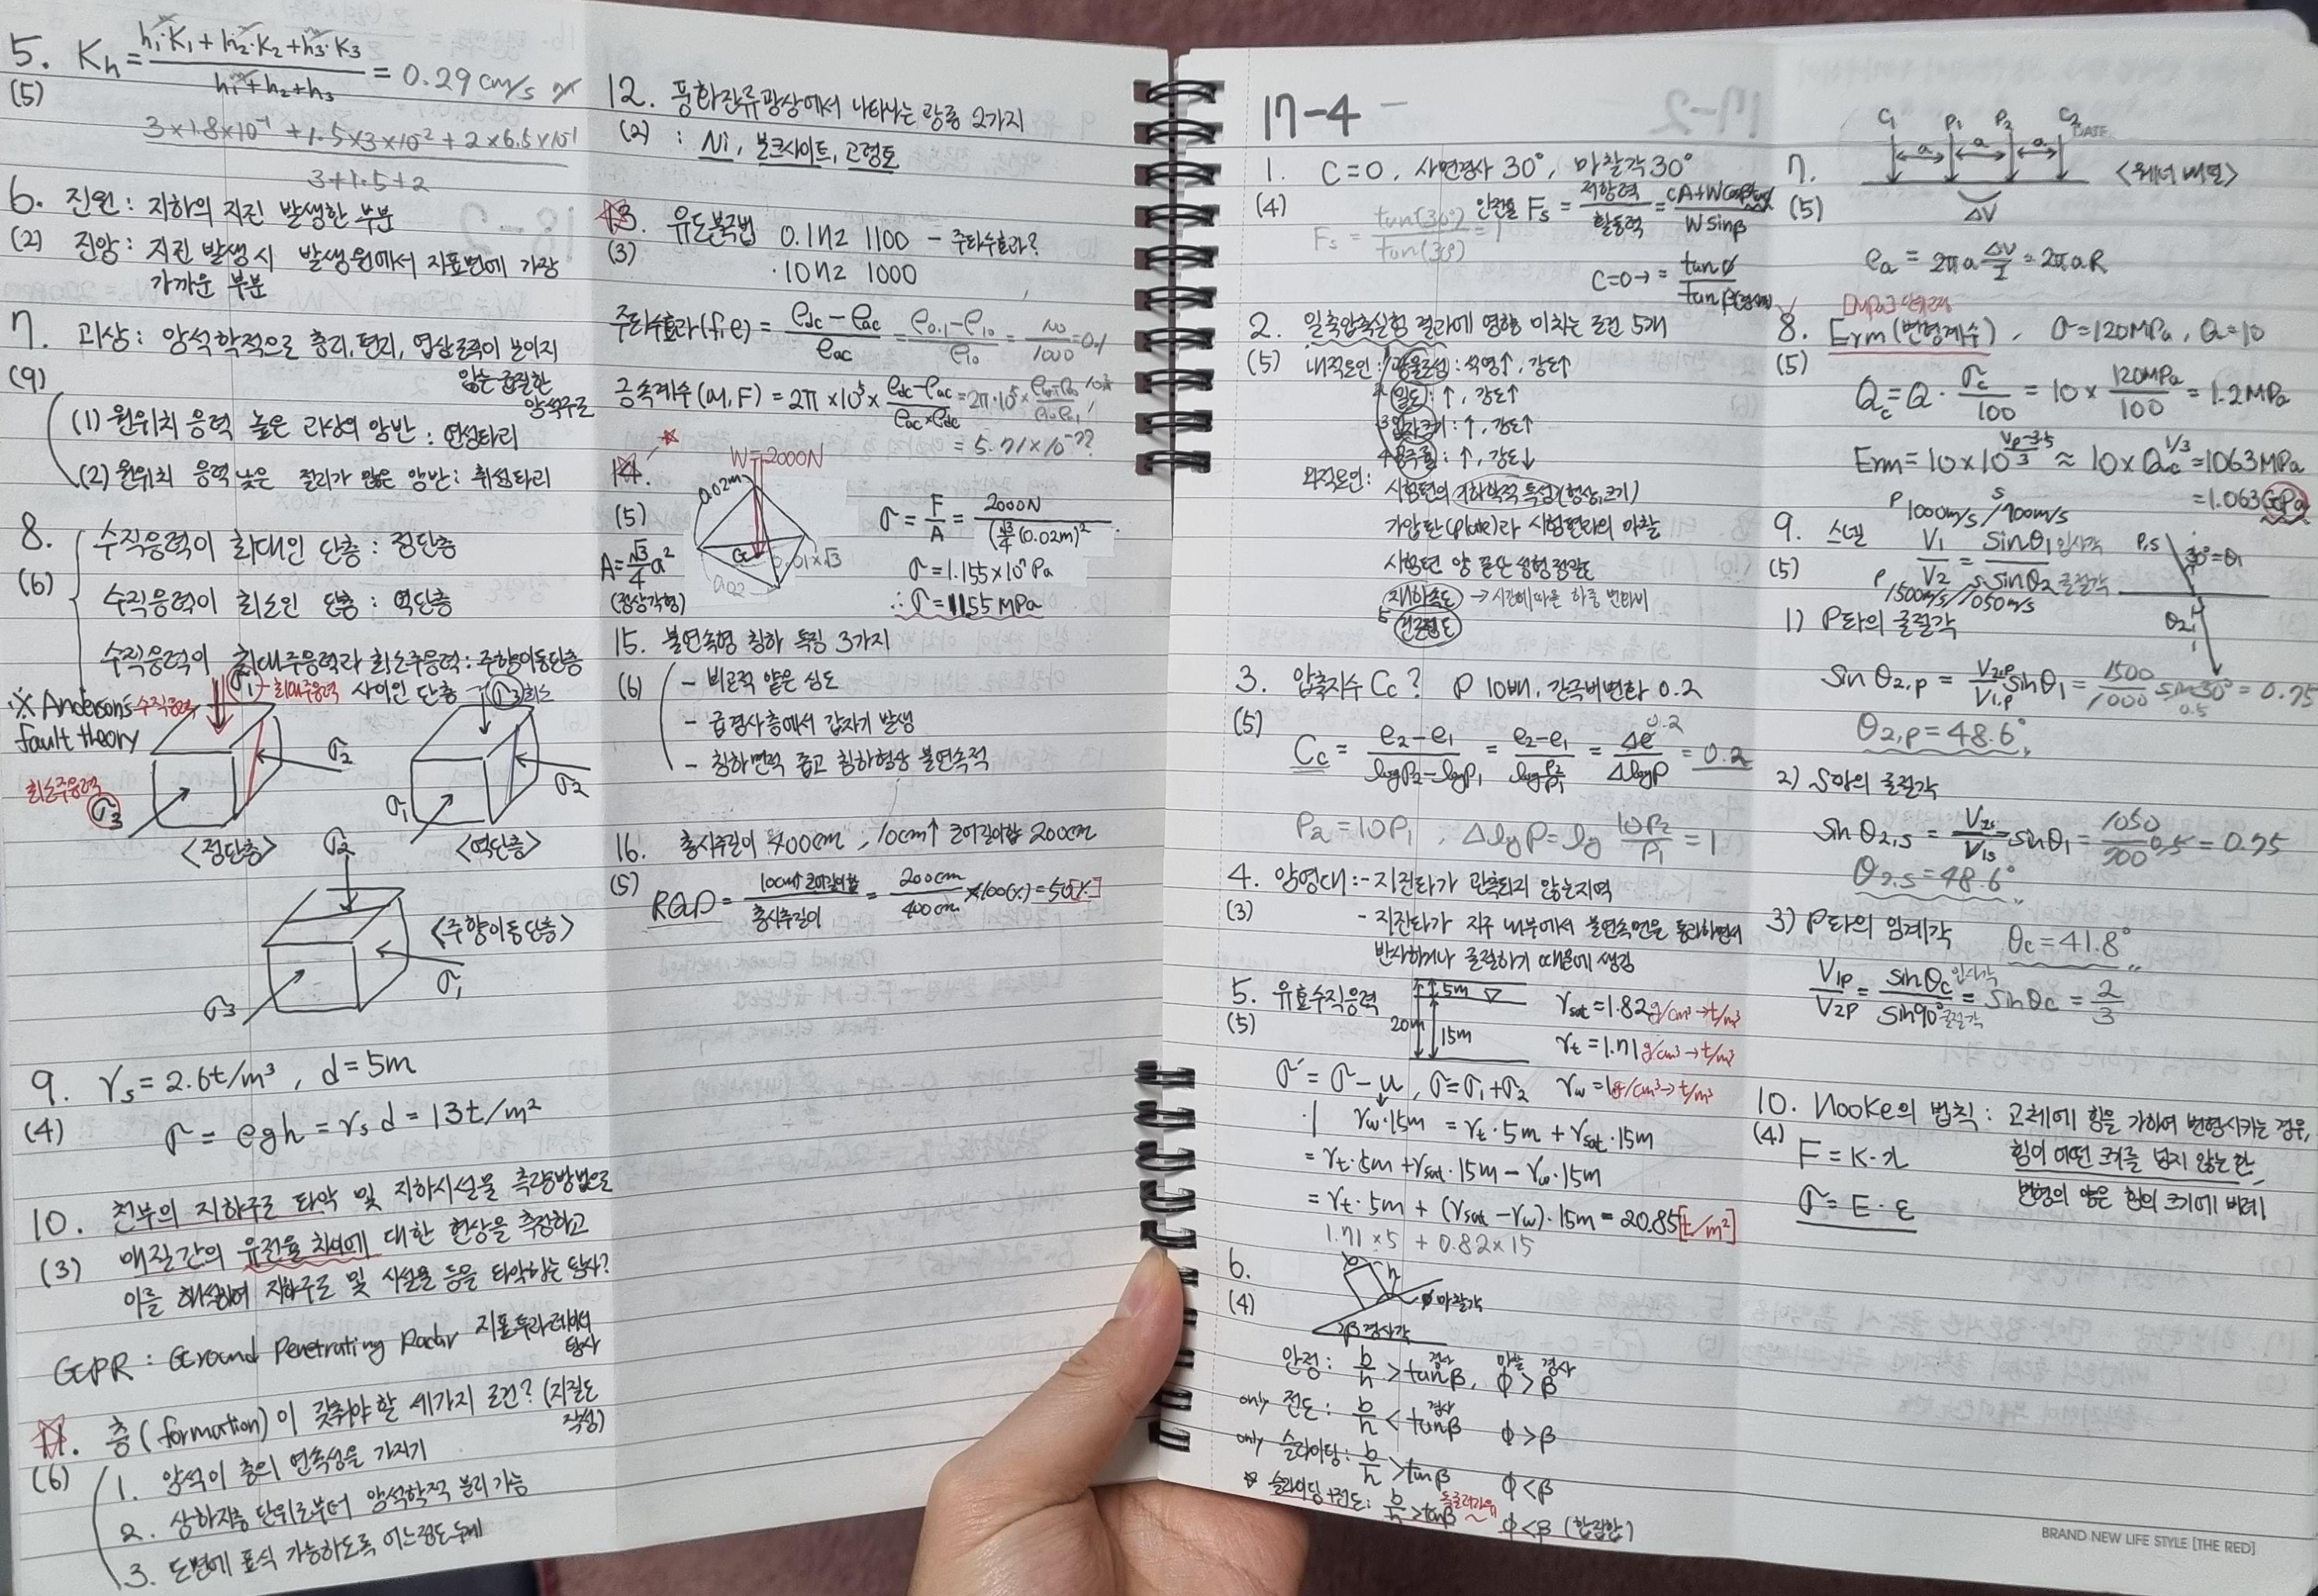 5. Kh = (h1·K1 + h2·K2 + h3·K3) / (h1+h2+h3) = 0.29 cm/s
(5)
3×1.8×10⁻¹ + 1.5×3×10⁻² + 2×6.5×10⁻¹
3+1.5+2
6. 진원 : 지하의 지진 발생한 부분
(2) 진앙 : 지진 발생 시 발생원에서 지표면에 가장
가까운 부분
7. 괴상 : 암석학적으로 층리, 편리, 엽상조직이 보이지
(9) 않는 균질한
암석구조
(1) 원위치 응력 높은 괴상의 암반 : 연성파괴
(2) 원위치 응력 낮은 절리가 많은 암반 : 취성파괴
8. 수직응력이 최대인 단층 : 정단층
(6) 수직응력이 최소인 단층 : 역단층
수직응력이 최대주응력과 최소주응력 : 주향이동단층
사이인 단층
※ Anderson's
fault theory
수직응력
σ1 - 최대주응력
σ2
최소주응력
σ3
<정단층>
σ3 최소
σ2
σ1
<역단층>
σ2
<주향이동단층>
σ1
σ3
9. γs = 2.6t/m³ , d = 5m
(4) σ = ρgh = γs d = 13t/m²
10. 천부의 지하구조 파악 및 지하시설물 측량방법으로
(3) 매질간의 유전율 차이에 대한 현상을 측정하고
이를 해석하여 지하구조 및 시설물 등을 파악하는 탐사?
GPR : Ground Penetrating Radar 지표투과레이더
탐사
11. 층(formation)이 갖춰야 할 세가지 조건? (지질도
작성)
(6) 1. 암석이 층의 연속성을 가지기
2. 상하지층 단위로부터 암석학적 분리 가능
3. 도면에 표식 가능하도록 어느정도 두께
12. 풍화잔류광상에서 나타나는 광종 2가지
(2) : Ni, 보크사이트, 고령토
13. 유도분극법 0.1Hz 1100 - 주파수효과?
(3) 10Hz 1000
주파수효과(f,e) = (ρdc - ρac) / ρac = (ρ0.1 - ρ10) / ρ10 = 100 / 1000 = 0.1
금속계수(M,F) = 2π × 10⁵ × (ρdc - ρac) / (ρac×ρdc)
= 5.71×10⁻²??
14. W=2000N
(5) 0.02m
G
0.01×√3
0.02
A = √3/4 a²
(정삼각형)
σ = F/A = 2000N / (√3/4 (0.02m)²)
σ = 1.155×10⁷ Pa
∴ σ = 11.55 MPa
15. 불연속형 침하 특징 3가지
(6) - 비교적 얕은 심도
- 급경사층에서 갑자기 발생
- 침하면적 좁고 침하형상 불연속적
16. 총시추길이 400cm , 10cm↑ 코어길이합 200cm
(5) RQD = 10cm↑ 코어길이합 / 총시추길이 = 200cm / 400cm ×100(%) = 50[%]
17-4
1. C=0, 사면경사 30°, 마찰각 30°
(4) 안전율 Fs = 저항력 / 활동력 = (cA+Wcosβtanφ) / Wsinβ
Fs = tan(30°) / tan(30°) = 1
C=0 → = tanφ / tanβ(경사각)
2. 일축압축실험 결과에 영향 미치는 조건 5개
(5) 내적요인 : 1 광물조성 : 석영↑, 강도↑
2 밀도 : ↑, 강도↑
3 입자크기 : ↑, 강도↑
4 공극률 : ↑, 강도↓
외적요인 : 시험편의 기하학적 특성(형상, 크기)
가압판(plate)과 시험편과의 마찰
시험편 양 끝단 성형 정밀도
재하속도 → 시간에 따른 하중 변화비
5 건조정도
3. 압축지수 Cc? P 10배, 간극비변화 0.2
(5) Cc = (e2-e1) / (logP2-logP1) = (e2-e1) / log(P2/P1) = Δe / ΔlogP = 0.2
0.2
P2=10P1 , ΔlogP = log 10P2/P1 = 1
4. 암영대 : - 지진파가 관측되지 않는 지역
(3) - 지진파가 지구 내부에서 불연속면을 통과하면서
반사하거나 굴절하기 때문에 생김
5. 유효수직응력
(5) 5m
20m 15m
γsat = 1.82 g/cm³→t/m³
γt = 1.71 g/cm³→t/m³
γw = 1g/cm³→t/m³
σ' = σ - u , σ = σ1+σ2
γw·15m = γt·5m + γsat·15m
= γt·5m + γsat·15m - γw·15m
= γt·5m + (γsat - γw)·15m = 20.85[t/m²]
1.71×5 + 0.82×15
6. b h
(4) φ마찰각
β 경사각
안정 : b/h > tanβ, φ > β
경사 마찰 경사
only 전도 : b/h < tanβ φ > β
경사
only 슬라이딩 : b/h > tanβ φ < β
☆ 슬라이딩+전도 : b/h > tanβ φ < β (합집합)
C1 P1 P2 C2
DATE
a a a
7. <웨너 배열>
(5) ΔV
ρa = 2πa ΔV/I = 2πaR
8. Erm(변형계수), σ=120MPa, Q=10
(5) Qc = Q · σc/100 = 10 × 120MPa/100 = 1.2MPa
Erm = 10×10^((Vp-3.5)/3) ≈ 10×Qc^(1/3) = 1063MPa
= 1.063GPa
P 1000m/s / S 700m/s
9. 스넬 V1/V2 = sinθ1 입사각 / sinθ2 굴절각
(5) P 1500m/s / S 1050m/s
P,S 30°=θ1
θ2
1) P파의 굴절각
sinθ2,p = V2,p/V1,p sinθ1 = 1500/1000 sin30° = 0.75
0.5
θ2,p = 48.6°
2) S파의 굴절각
sinθ2,s = V2s/V1s sinθ1 = 1050/700 0.5 = 0.75
θ2,s = 48.6°
3) P파의 임계각 θc = 41.8°
V1P/V2P = sinθc 입사각 / sin90° 굴절각 = sinθc = 2/3
10. Hooke의 법칙 : 고체에 힘을 가하여 변형시키는 경우,
(4) F = K·x 힘이 어떤 크기를 넘지 않는 한,
σ = E·ε 변형의 양은 힘의 크기에 비례!
BRAND NEW LIFE STYLE [THE RED]